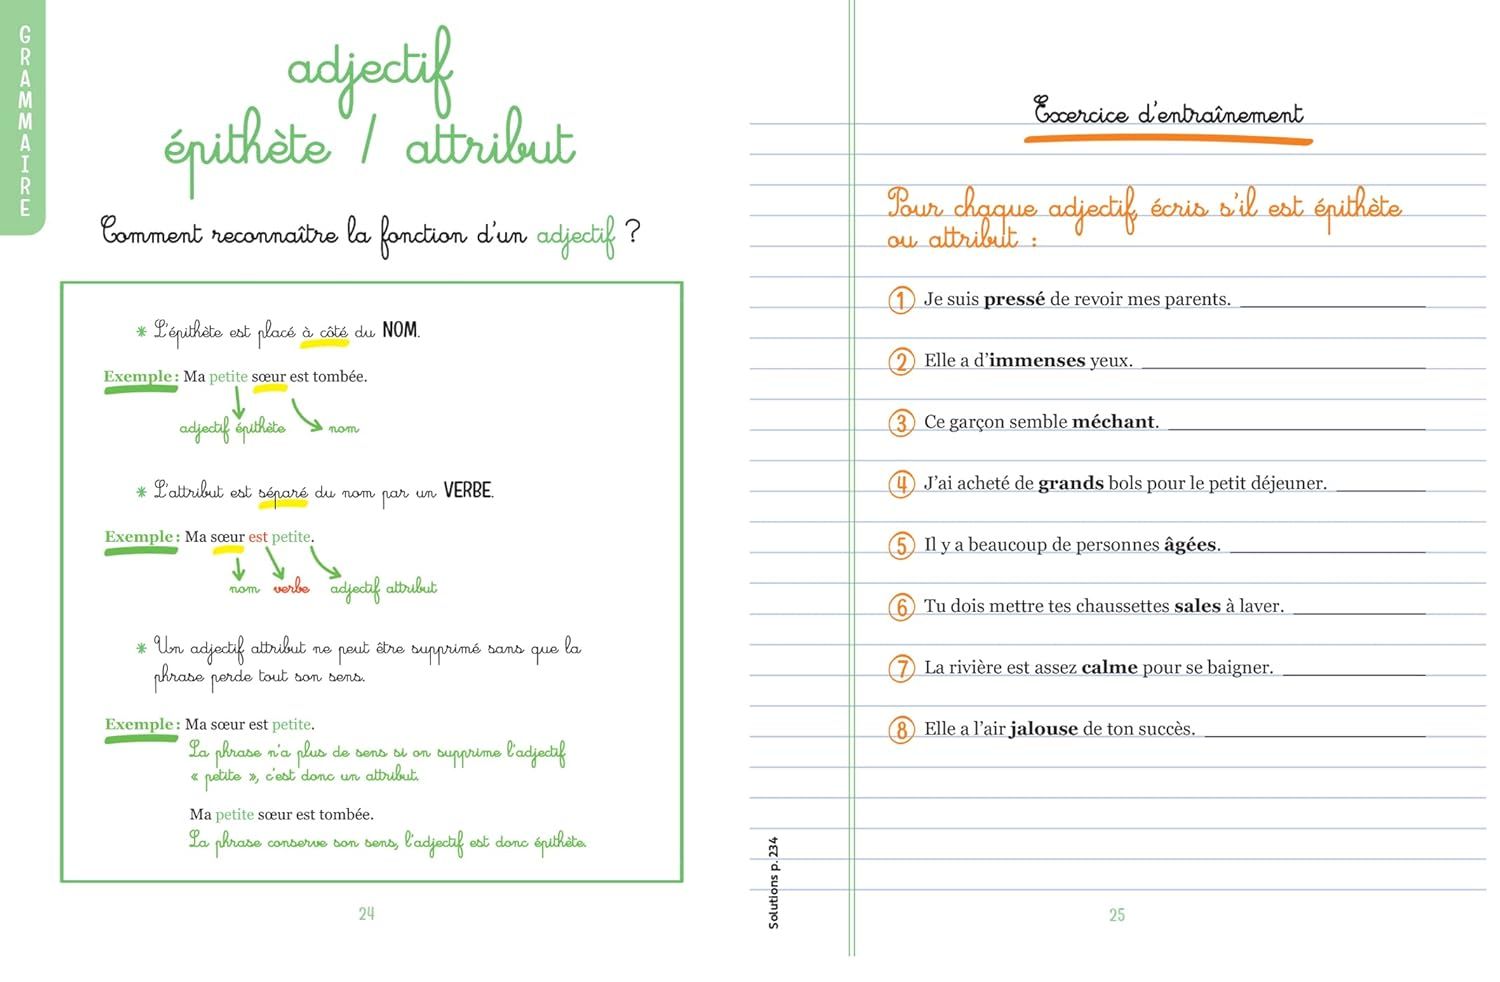 GRAMMAIRE
adjectif
épithète / attribut
Comment reconnaître la fonction d'un adjectif ?
* L'épithète est placé à côté du NOM.
Exemple : Ma petite sœur est tombée.
adjectif épithète nom
* L'attribut est séparé du nom par un VERBE.
Exemple : Ma sœur est petite.
nom verbe adjectif attribut
* Un adjectif attribut ne peut être supprimé sans que la
phrase perde tout son sens.
Exemple : Ma sœur est petite.
La phrase n'a plus de sens si on supprime l'adjectif
« petite », c'est donc un attribut.
Ma petite sœur est tombée.
La phrase conserve son sens, l'adjectif est donc épithète.
24
Exercice d'entraînement
Pour chaque adjectif, écris s'il est épithète
ou attribut :
1 Je suis pressé de revoir mes parents.
2 Elle a d'immenses yeux.
3 Ce garçon semble méchant.
4 J'ai acheté de grands bols pour le petit déjeuner.
5 Il y a beaucoup de personnes âgées.
6 Tu dois mettre tes chaussettes sales à laver.
7 La rivière est assez calme pour se baigner.
8 Elle a l'air jalouse de ton succès.
Solutions p. 234
25